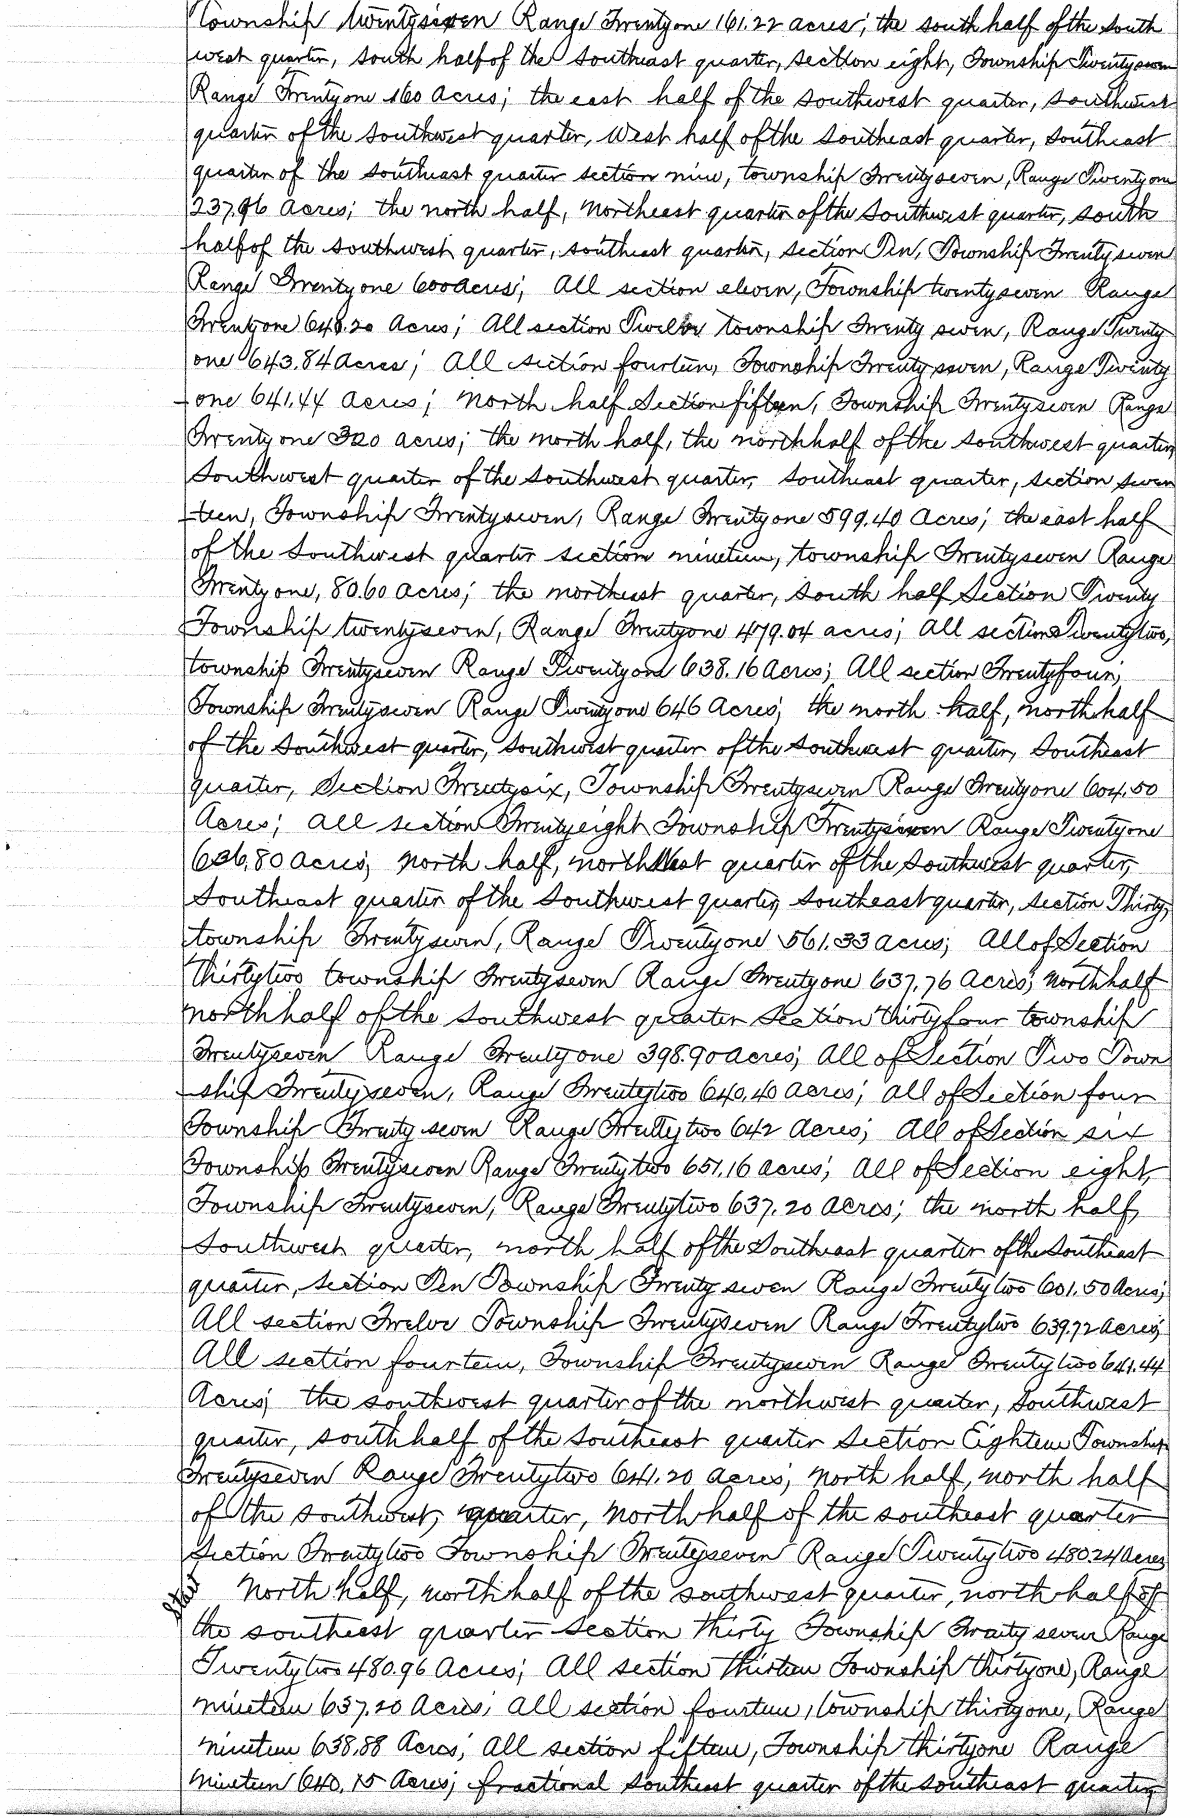 Township twentyseven Range Twentyone 161.22 acres; the south half of the south
west quarter, south half of the southeast quarter, section eight, Township Twentyseven
Range Twentyone 160 acres; the east half of the southwest quarter, southwest
quarter of the southwest quarter, West half of the southeast quarter, southeast
quarter of the southeast quarter section nine, township Twentyseven, Range Twentyone
237.96 acres; the north half, northeast quarter of the southwest quarter, south
half of the southwest quarter, southeast quarter, section Ten, Township Twentyseven
Range Twentyone 600 acres; All section eleven, Township twentyseven Range
Twentyone 648.20 Acres; All section Twelve township Twenty seven, Range Twenty
one 643.84 Acres; All section fourteen, Township Twentyseven, Range Twenty
-one 641.44 acres; North half Section fifteen, Township Twentyseven Range
Twentyone 320 acres; the north half, the north half of the southwest quarter,
Southwest quarter of the southwest quarter, southeast quarter, section seven
-teen, Township Twentyseven, Range Twentyone 599.40 acres; the east half
of the Southwest quarter section nineteen, township Twentyseven Range
Twentyone, 80.60 acres; the northeast quarter, south half Section Twenty
Township twentyseven, Range Twentyone 479.04 acres; All section Twentytwo,
township Twentyseven Range Twentyone 638.16 Acres; All section Twentyfour,
Township Twentyseven Range Twentyone 646 Acres; the north half, north half
of the Southwest quarter, southwest quarter of the southwest quarter, Southeast
quarter, Section Twentysix, Township Twentyseven Range Twentyone 604.50
Acres; all section Twentyeight Township Twentyseven Range Twentyone
636.80 acres; north half, northWest quarter of the Southwest quarter,
Southeast quarter of the Southwest quarter, southeast quarter, section Thirty,
township Twentyseven, Range Twentyone 561.33 acres; All of Section
Thirtytwo township Twentyseven Range Twentyone 637.76 Acres; north half
north half of the Southwest quarter Section thirtyfour township
Twentyseven Range Twentyone 398.90 acres; All of Section Two Town
-ship Twentyseven, Range Twentytwo 640.40 Acres; All of Section four
Township Twenty seven Range Twentytwo 642 Acres; All of Section six
Township Twentyseven Range Twentytwo 651.16 acres; All of Section eight,
Township Twentyseven, Range Twentytwo 637.20 Acres; the north half,
Southwest quarter, north half of the Southeast quarter of the Southeast
quarter, section Ten Township Twenty seven Range Twentytwo 601.50 Acres;
All section Twelve Township Twentyseven Range Twentytwo 639.72 Acres;
All section fourteen, Township Twentyseven Range Twentytwo 641.44
Acres; the southwest quarter of the northwest quarter, Southwest
quarter, south half of the Southeast quarter Section Eighteen Township
Twentyseven Range Twentytwo 641.20 acres; North half, north half
of the southwest, quarter, north half of the southeast quarter
Section Twentytwo Township Twentyseven Range Twentytwo 480.24 Acres
North half, north half of the southwest quarter, north half of
the southeast quarter Section thirty Township Twenty seven Range
Twentytwo 480.96 Acres; All section thirteen Township thirtyone, Range
nineteen 637.20 Acres; all section fourteen, township thirtyone, Range
nineteen 638.88 Acres; All section fifteen, Township thirtyone Range
nineteen 640.15 Acres; fractional southeast quarter of the southeast quarter,